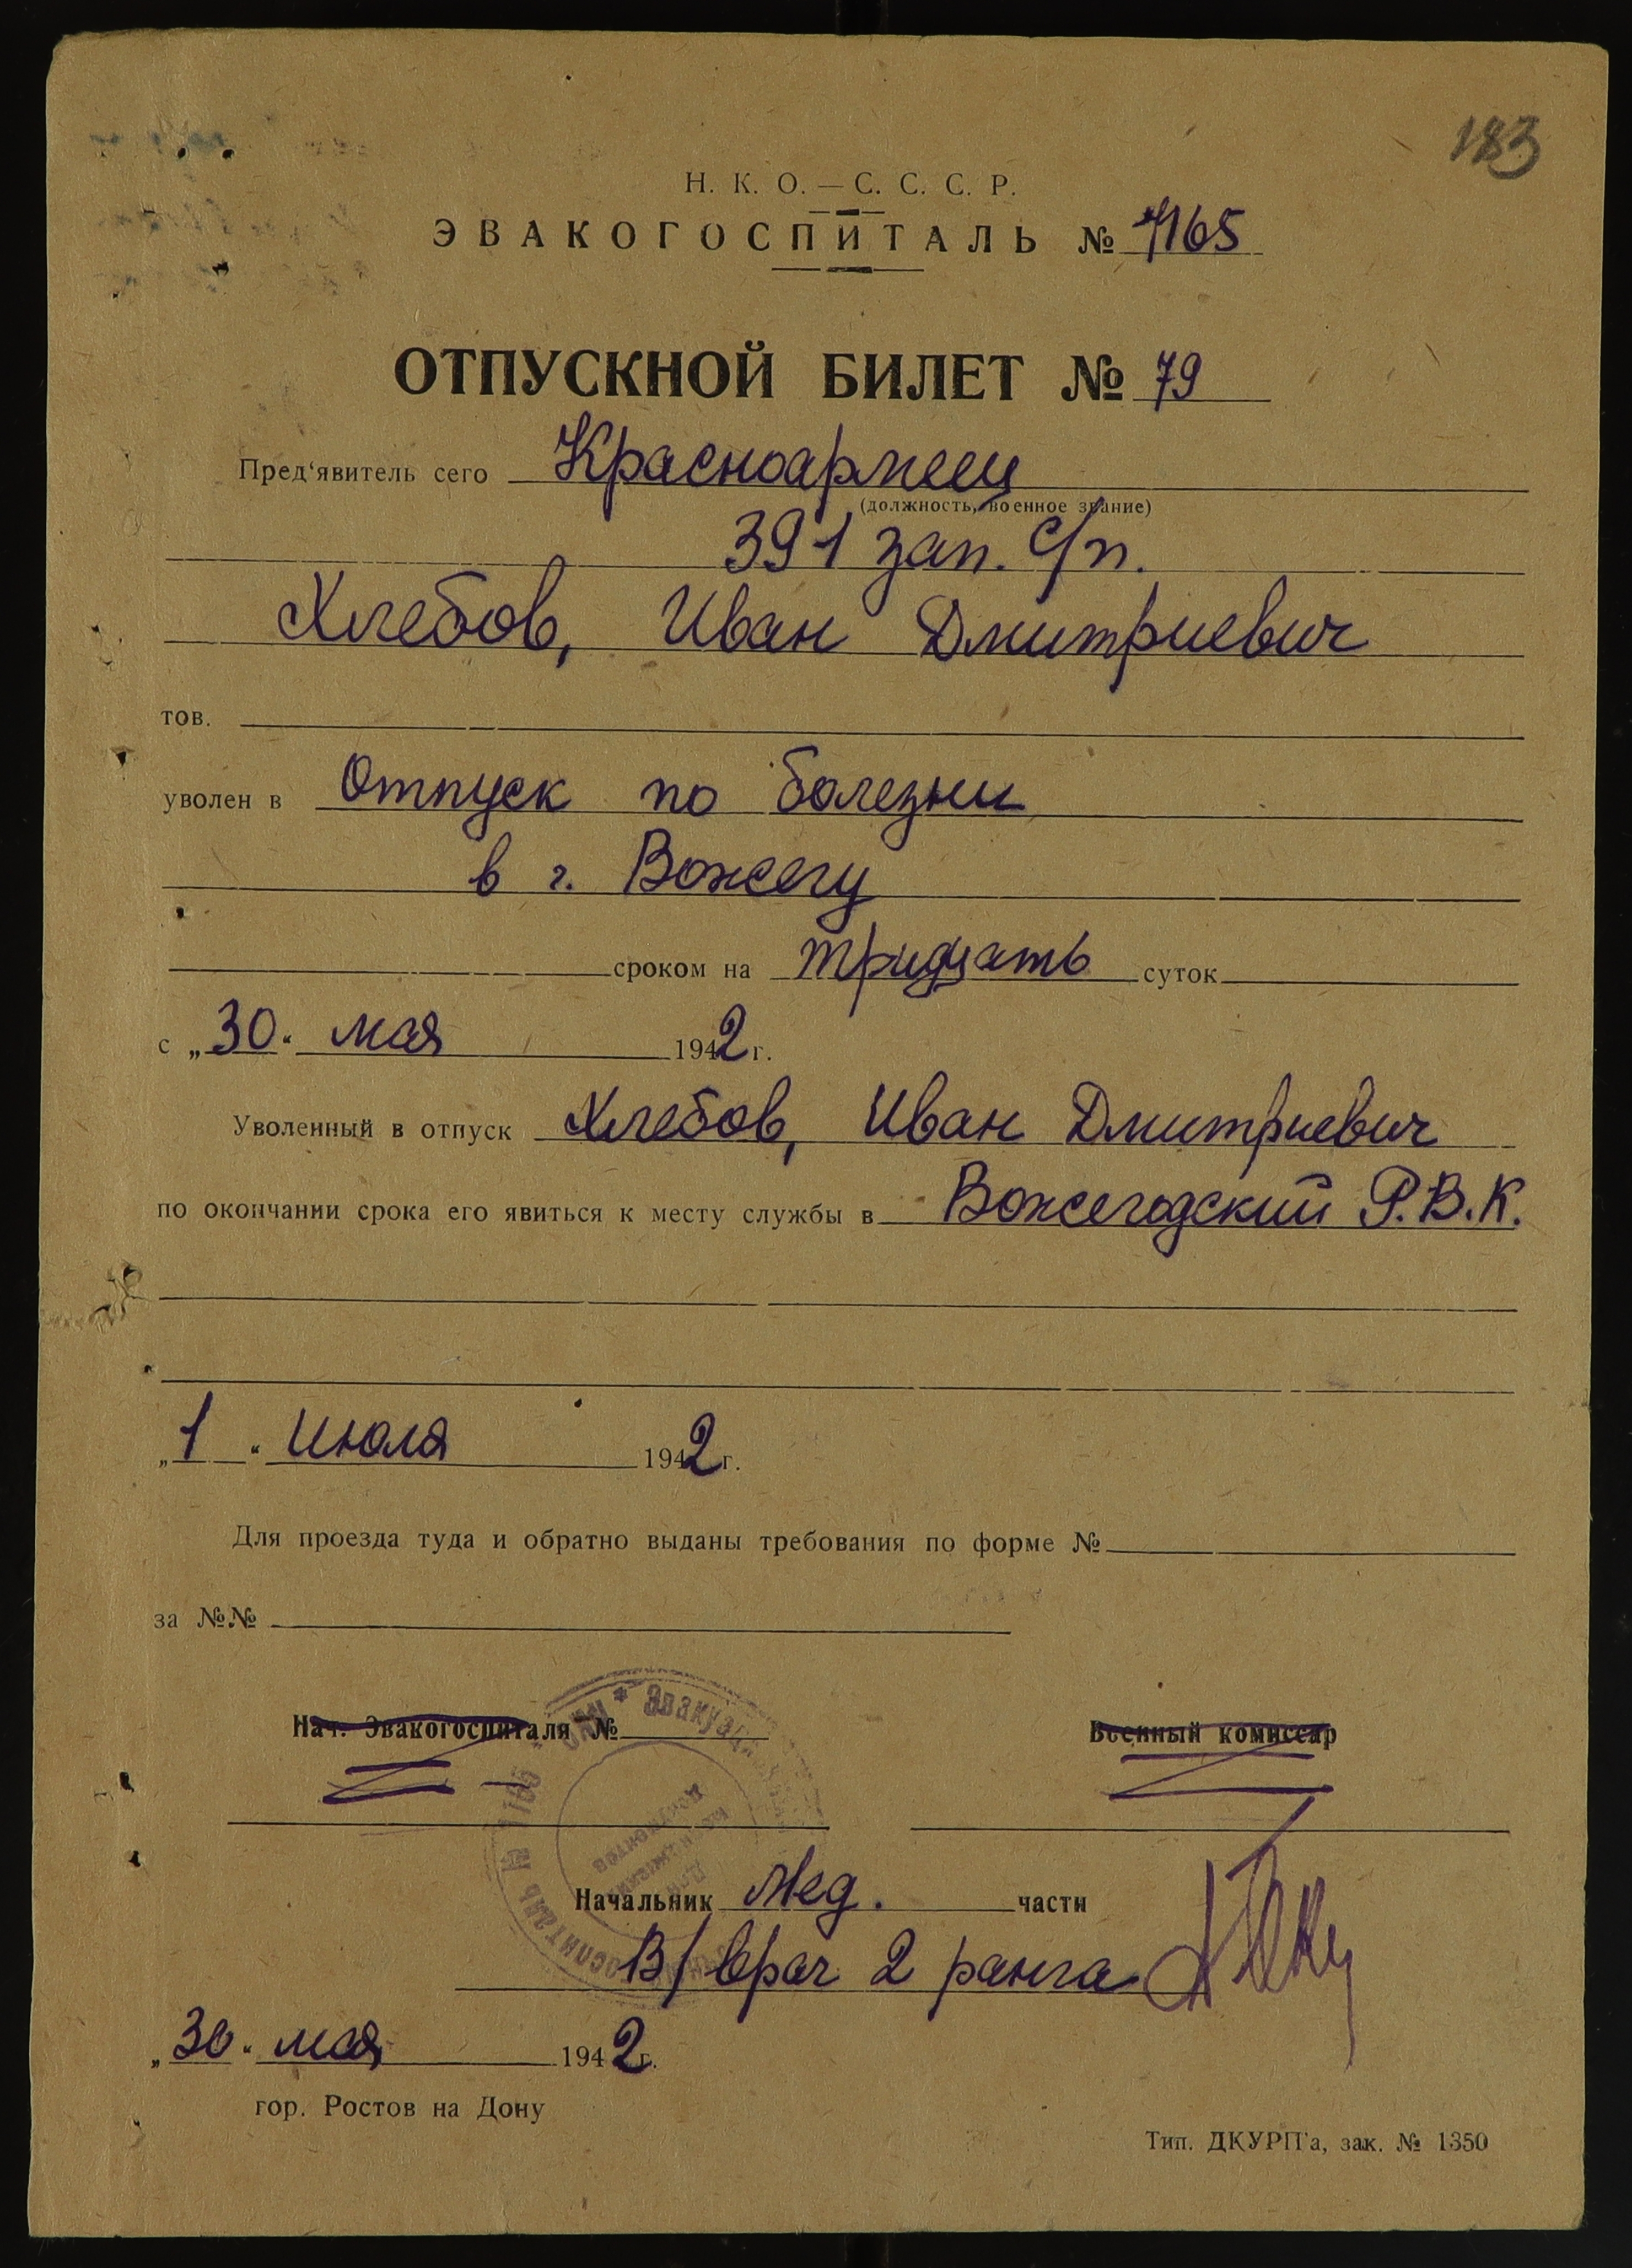 183
Н. К. О. — С. С. С. Р.
ЭВАКОГОСПИТАЛЬ № 1165
ОТПУСКНОЙ БИЛЕТ № 79
Пред‘явитель сего Красноармеец
(должность, военное звание)
391 зап. с/п.
Хлебов, Иван Дмитриевич
тов.
уволен в Отпуск по болезни
в г. Вожегу
сроком на тридцать суток
с „30“ мая 1942 г.
Уволенный в отпуск Хлебов, Иван Дмитриевич
по окончании срока его явиться к месту службы в Вожегодский Р.В.К.
„1“ Июля 1942 г.
Для проезда туда и обратно выданы требования по форме №
за №№
Нач. Эвакогоспиталя № Военный комиссар
* Эвакуационный госпиталь № 1165
Для медицинских документов
Начальник Мед. части
В/врач 2 ранга
„30“ мая 1942 г.
гор. Ростов на Дону
Тип. ДКУРП‘а, зак. № 1350